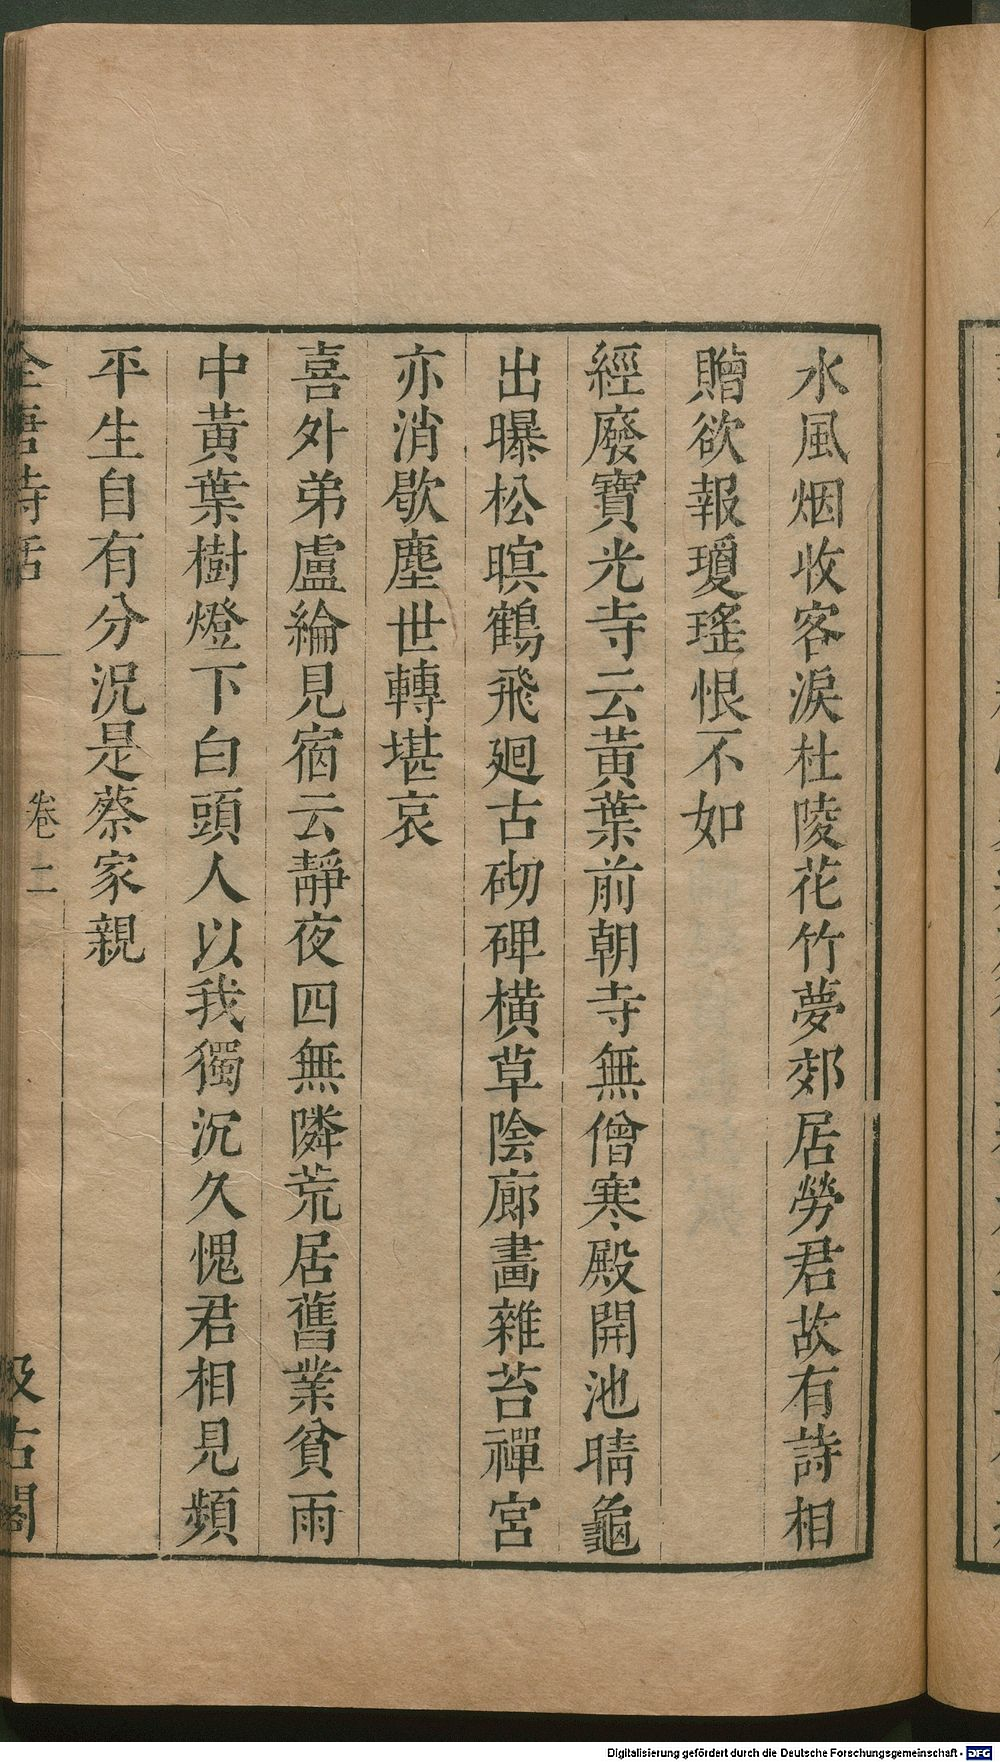 水風烟收客淚杜陵花竹夢郊居勞君故有詩相
贈欲報瓊瑤恨不如
經廢寶光寺云黃葉前朝寺無僧寒殿開池晴龜
出曝松暝鶴飛廻古砌碑橫草陰廊畫雜苔禪宮
亦消歇塵世轉堪哀
喜外弟盧綸見宿云靜夜四無隣荒居舊業貧雨
中黃葉樹燈下白頭人以我獨沉久愧君相見頻
平生自有分況是蔡家親
全唐詩話 卷二 汲古閣
Digitalisierung gefördert durch die Deutsche Forschungsgemeinschaft - DFG